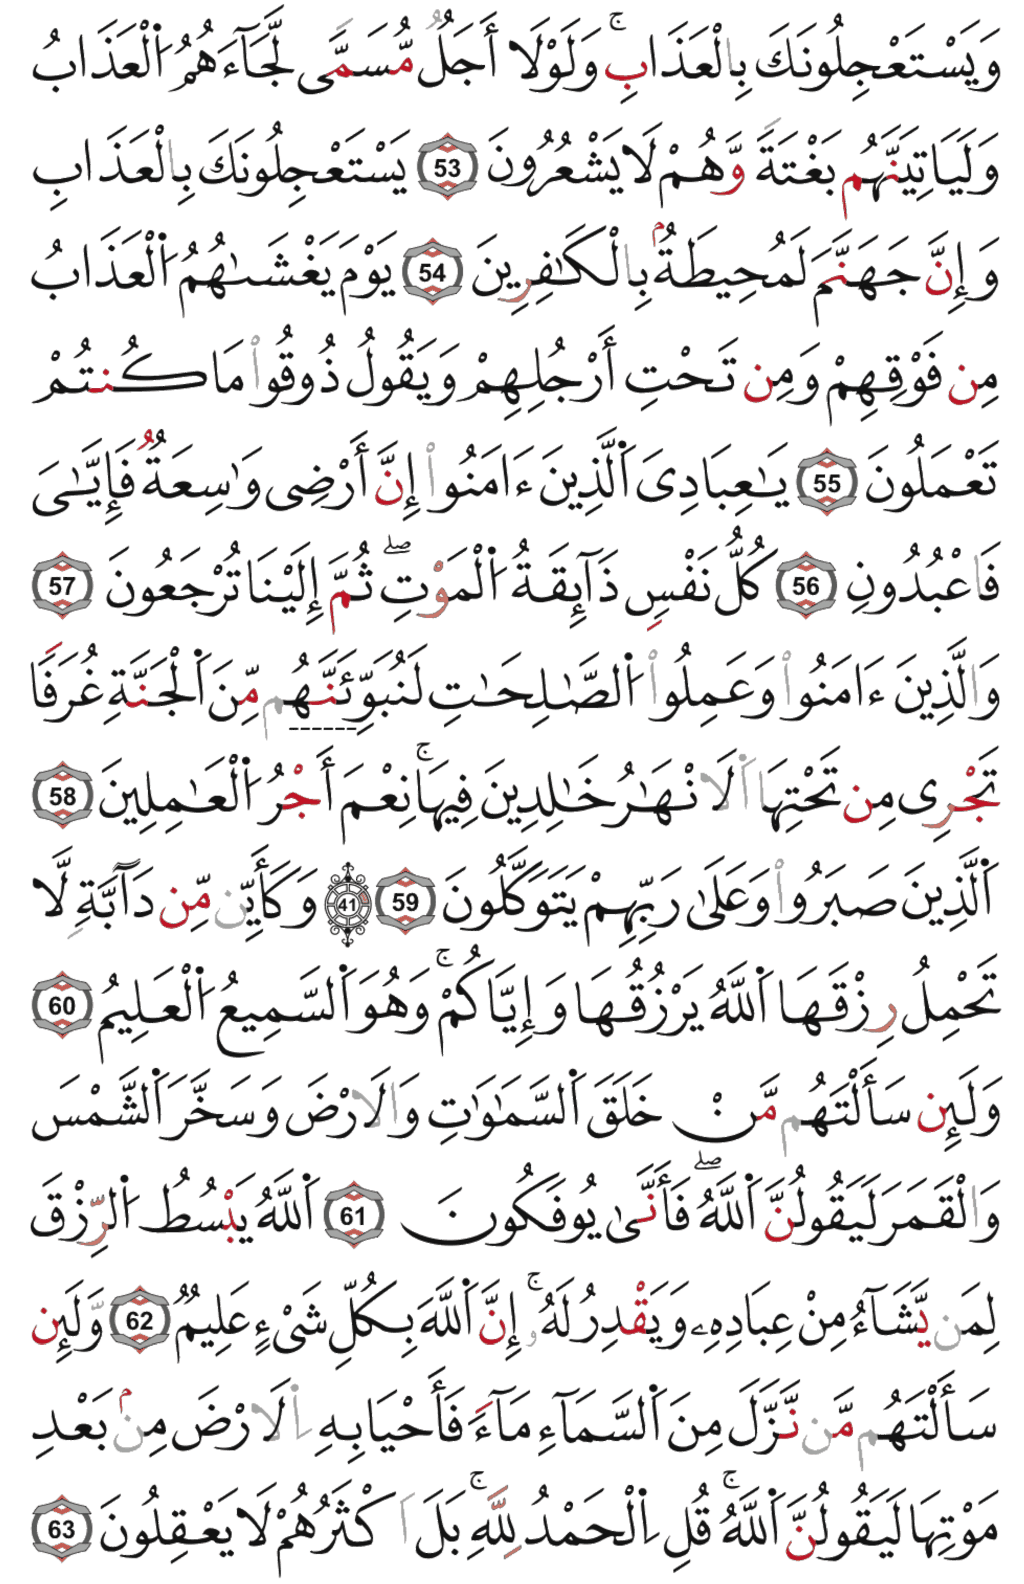 وَيَسْتَعْجِلُونَكَ بِالْعَذَابِ ۚ وَلَوْلَا أَجَلٌ مُّسَمًّى لَّجَآءَهُمُ اَ۬لْعَذَابُ
وَلَيَاتِيَنَّهُم بَغْتَةً وَّهُمْ لَا يَشْعُرُونَ 53 يَسْتَعْجِلُونَكَ بِالْعَذَابِ
وَإِنَّ جَهَنَّمَ لَمُحِيطَةُۢ بِالْكَٰفِرِينَ 54 يَوْمَ يَغْشَىٰهُمُ اُ۬لْعَذَابُ
مِن فَوْقِهِمْ وَمِن تَحْتِ أَرْجُلِهِمْ وَيَقُولُ ذُوقُواْ مَا كُنتُمْ
تَعْمَلُونَ 55 يَٰعِبَادِىَ اَ۬لَّذِينَ ءَامَنُواْ إِنَّ أَرْضِى وَٰسِعَةٌ فَإِيَّٰىَ
فَاعْبُدُونِ 56 كُلُّ نَفْسٍ ذَآئِقَةُ اُ۬لْمَوْتِ ۖ ثُمَّ إِلَيْنَا تُرْجَعُونَ 57
وَالَّذِينَ ءَامَنُواْ وَعَمِلُواْ اُ۬لصَّٰلِحَٰتِ لَنُبَوِّئَنَّهُم مِّنَ اَ۬لْجَنَّةِ غُرَفًا
تَجْرِى مِن تَحْتِهَا اَ۬لَانْهَٰرُ خَٰلِدِينَ فِيهَا ۚ نِعْمَ أَجْرُ اُ۬لْعَٰمِلِينَ 58
اَ۬لَّذِينَ صَبَرُواْ وَعَلَىٰ رَبِّهِمْ يَتَوَكَّلُونَ 59 41 وَكَأَيِّن مِّن دَآبَّةٍ لَّا
تَحْمِلُ رِزْقَهَا اَ۬للَّهُ يَرْزُقُهَا وَإِيَّاكُمْ ۚ وَهُوَ اَ۬لسَّمِيعُ اُ۬لْعَلِيمُ 60
وَلَئِن سَأَلْتَهُم مَّنْ خَلَقَ اَ۬لسَّمَٰوَٰتِ وَالَارْضَ وَسَخَّرَ اَ۬لشَّمْسَ
وَالْقَمَرَ لَيَقُولُنَّ اَ۬للَّهُ ۖ فَأَنَّىٰ يُوفَكُونَ 61 اَ۬للَّهُ يَبْسُطُ اُ۬لرِّزْقَ
لِمَن يَّشَآءُ مِنْ عِبَادِهِۦ وَيَقْدِرُ لَهُۥ ۚ إِنَّ اَ۬للَّهَ بِكُلِّ شَىْءٍ عَلِيمٌ 62 وَّلَئِن
سَأَلْتَهُم مَّن نَّزَّلَ مِنَ اَ۬لسَّمَآءِ مَآءً فَأَحْيَا بِهِ اِ۬لَارْضَ مِنۢ بَعْدِ
مَوْتِهَا لَيَقُولُنَّ اَ۬للَّهُ ۚ قُلِ اِ۬لْحَمْدُ لِلَّهِ ۚ بَلَ اَكْثَرُهُمْ لَا يَعْقِلُونَ 63